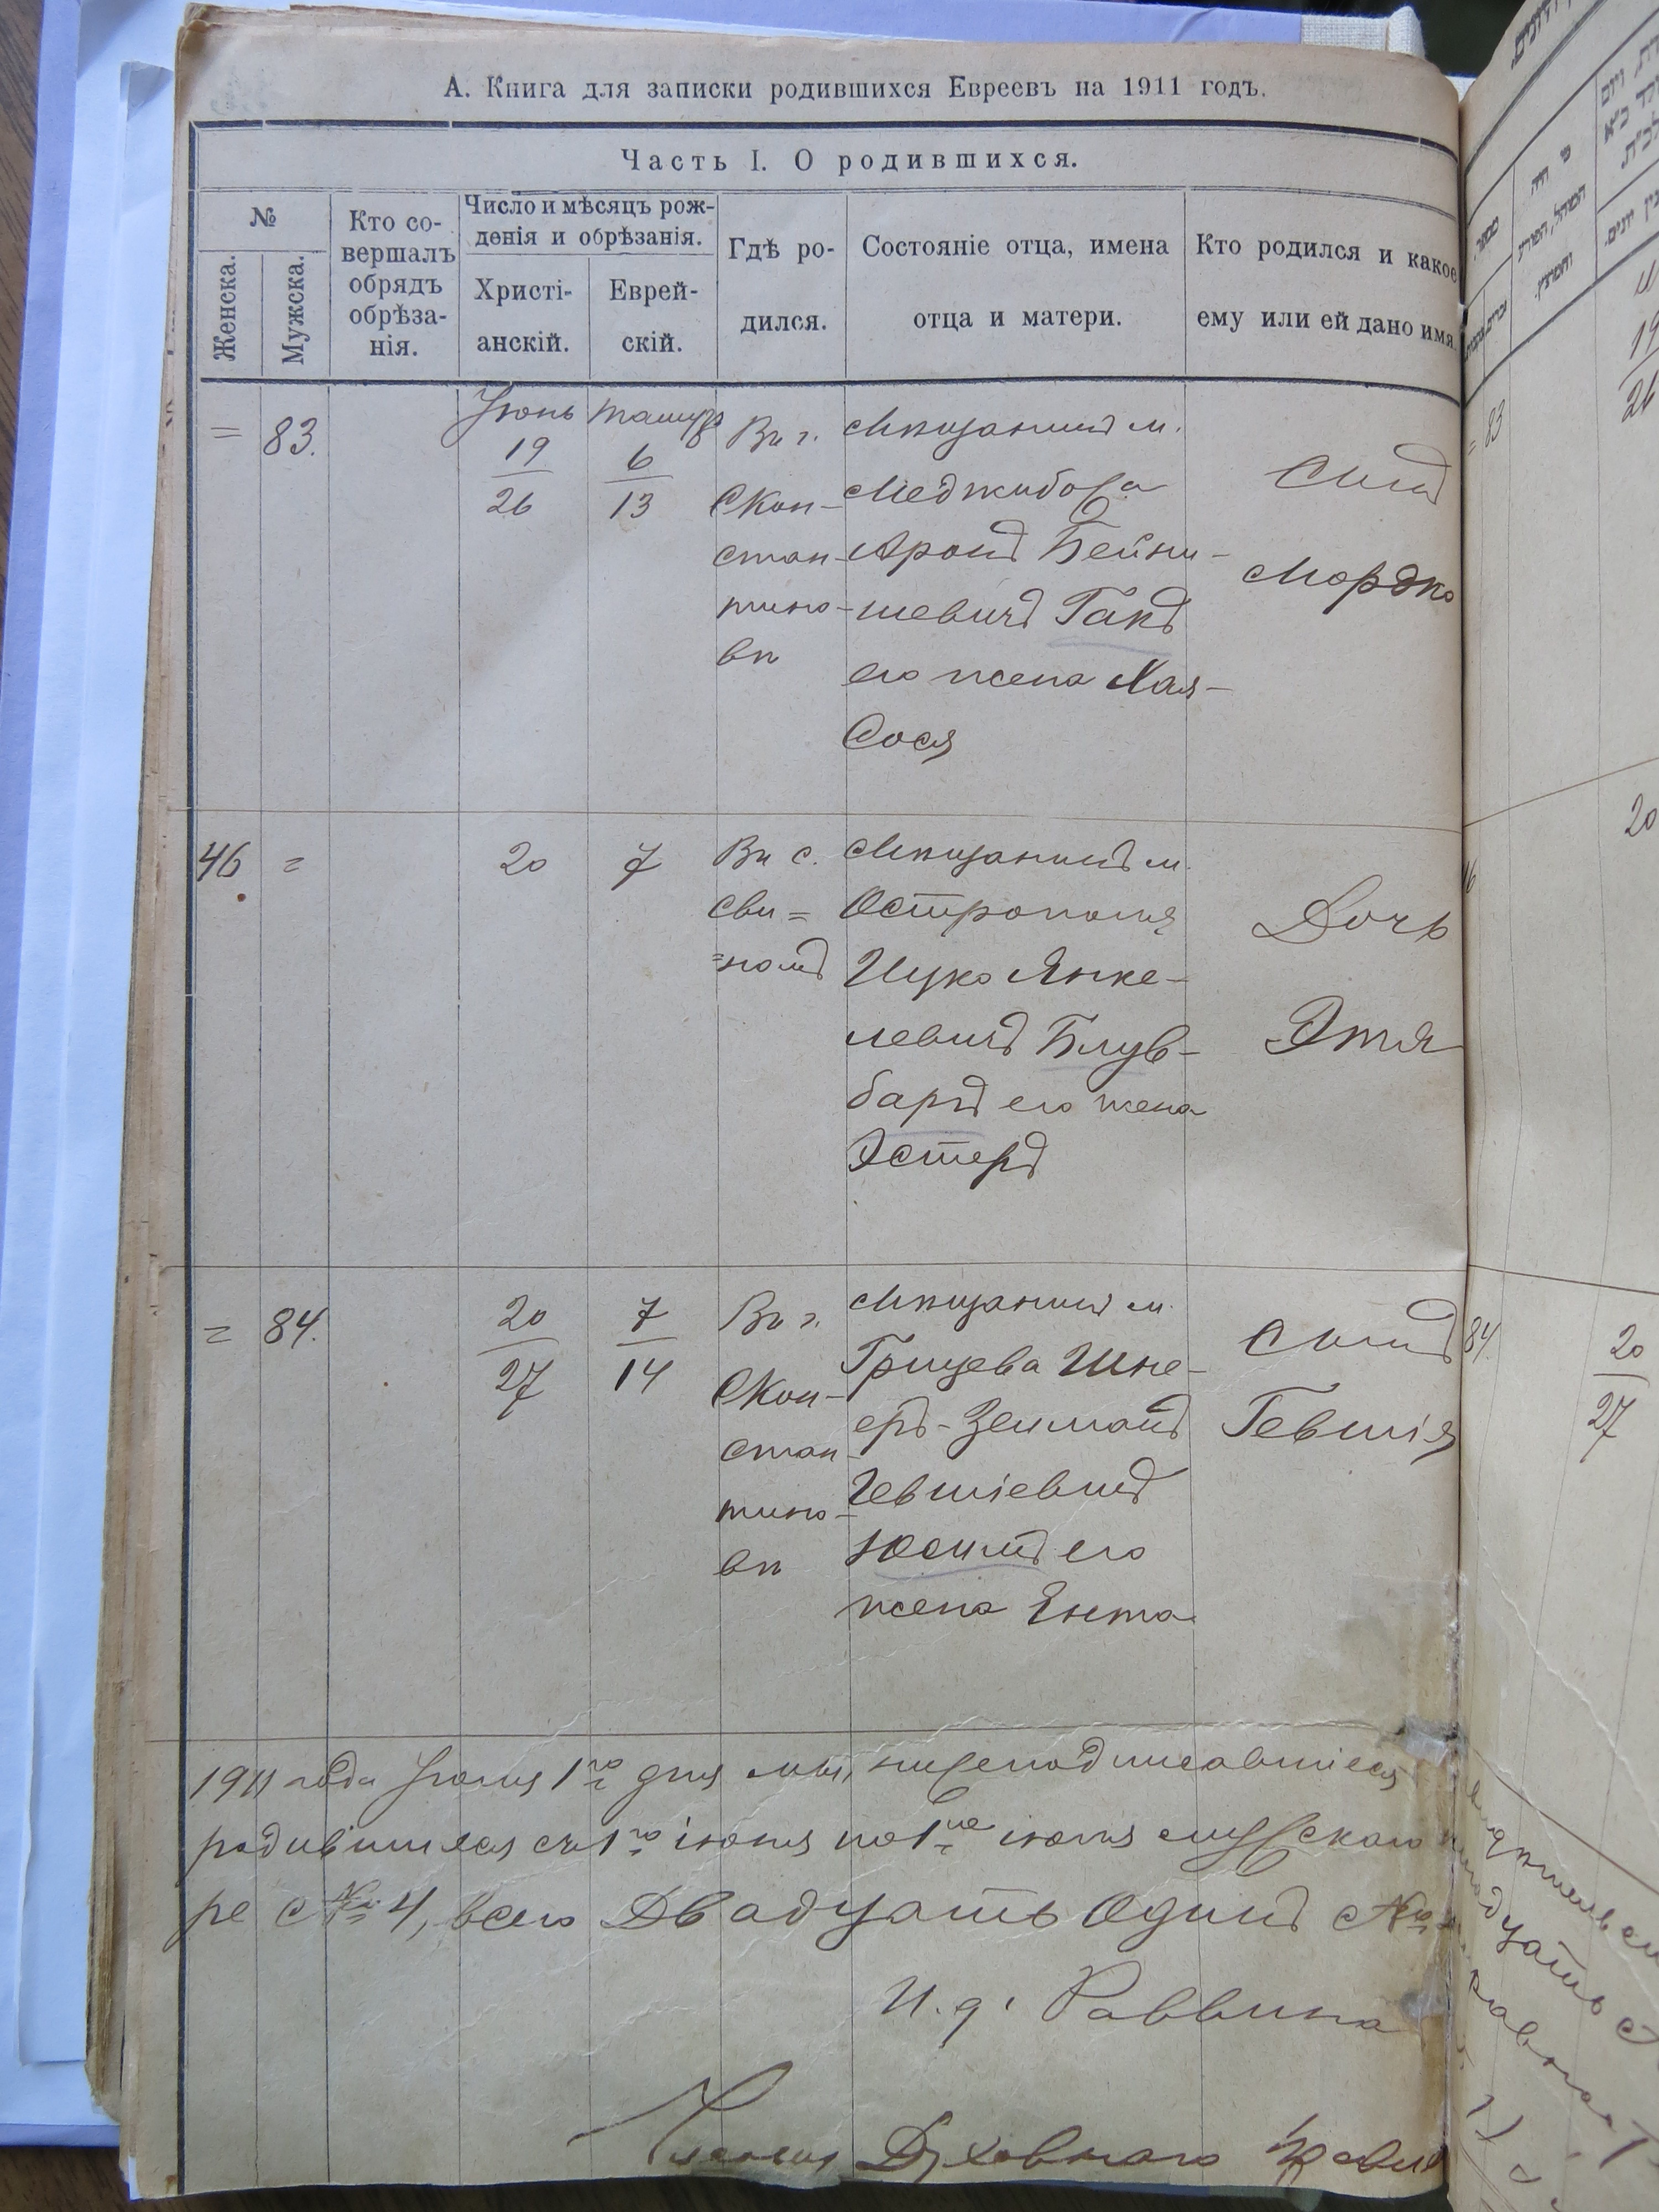 А. Книга для записки родившихся Евреевъ на 1911 годъ.
Часть I. О родившихся.
№
Женска.
Мужска.
Кто со-
вершалъ
обрядъ
обрѣза-
нія.
Число и мѣсяцъ рож-
денія и обрѣзанія.
Христі-
анскій.
Еврей-
скій.
Гдѣ ро-
дился.
Состояніе отца, имена
отца и матери.
Кто родился и какое
ему или ей дано имя.
=
83.
Іюнь
19
26
6
13
Въ г.
Скон-
стан-
тино-
вѣ
Мѣщанинъ м.
Меджибожа
Аронъ Бейни-
шевичъ Гакъ
его жена Хая-
Сося
Сынъ
Мордко
46
=
20
7
Въ с.
Сви=
=номъ
Мѣщанинъ м.
Острополя
Ицко Янке-
левичъ Блув-
баргъ его жена
Эстеръ
Дочь
Этя
=
84.
20
27
7
14
Въ г.
Скон-
стан
тино-
вѣ
Мѣщанинъ м.
Грицева Шне-
еръ-Зельманъ
Гевшіевичъ
его
жена Ента
Сынъ
Гевшія
1911 года Іюля 1го дня мы, нижеподписавшіеся
родившихся съ 1го іюня по 1ое іюля мужского
ре № 4, всего Двадцать Одинъ №
И. д. Раввина
Члены Духовнаго Правле
83
20
84
20
27
19
26